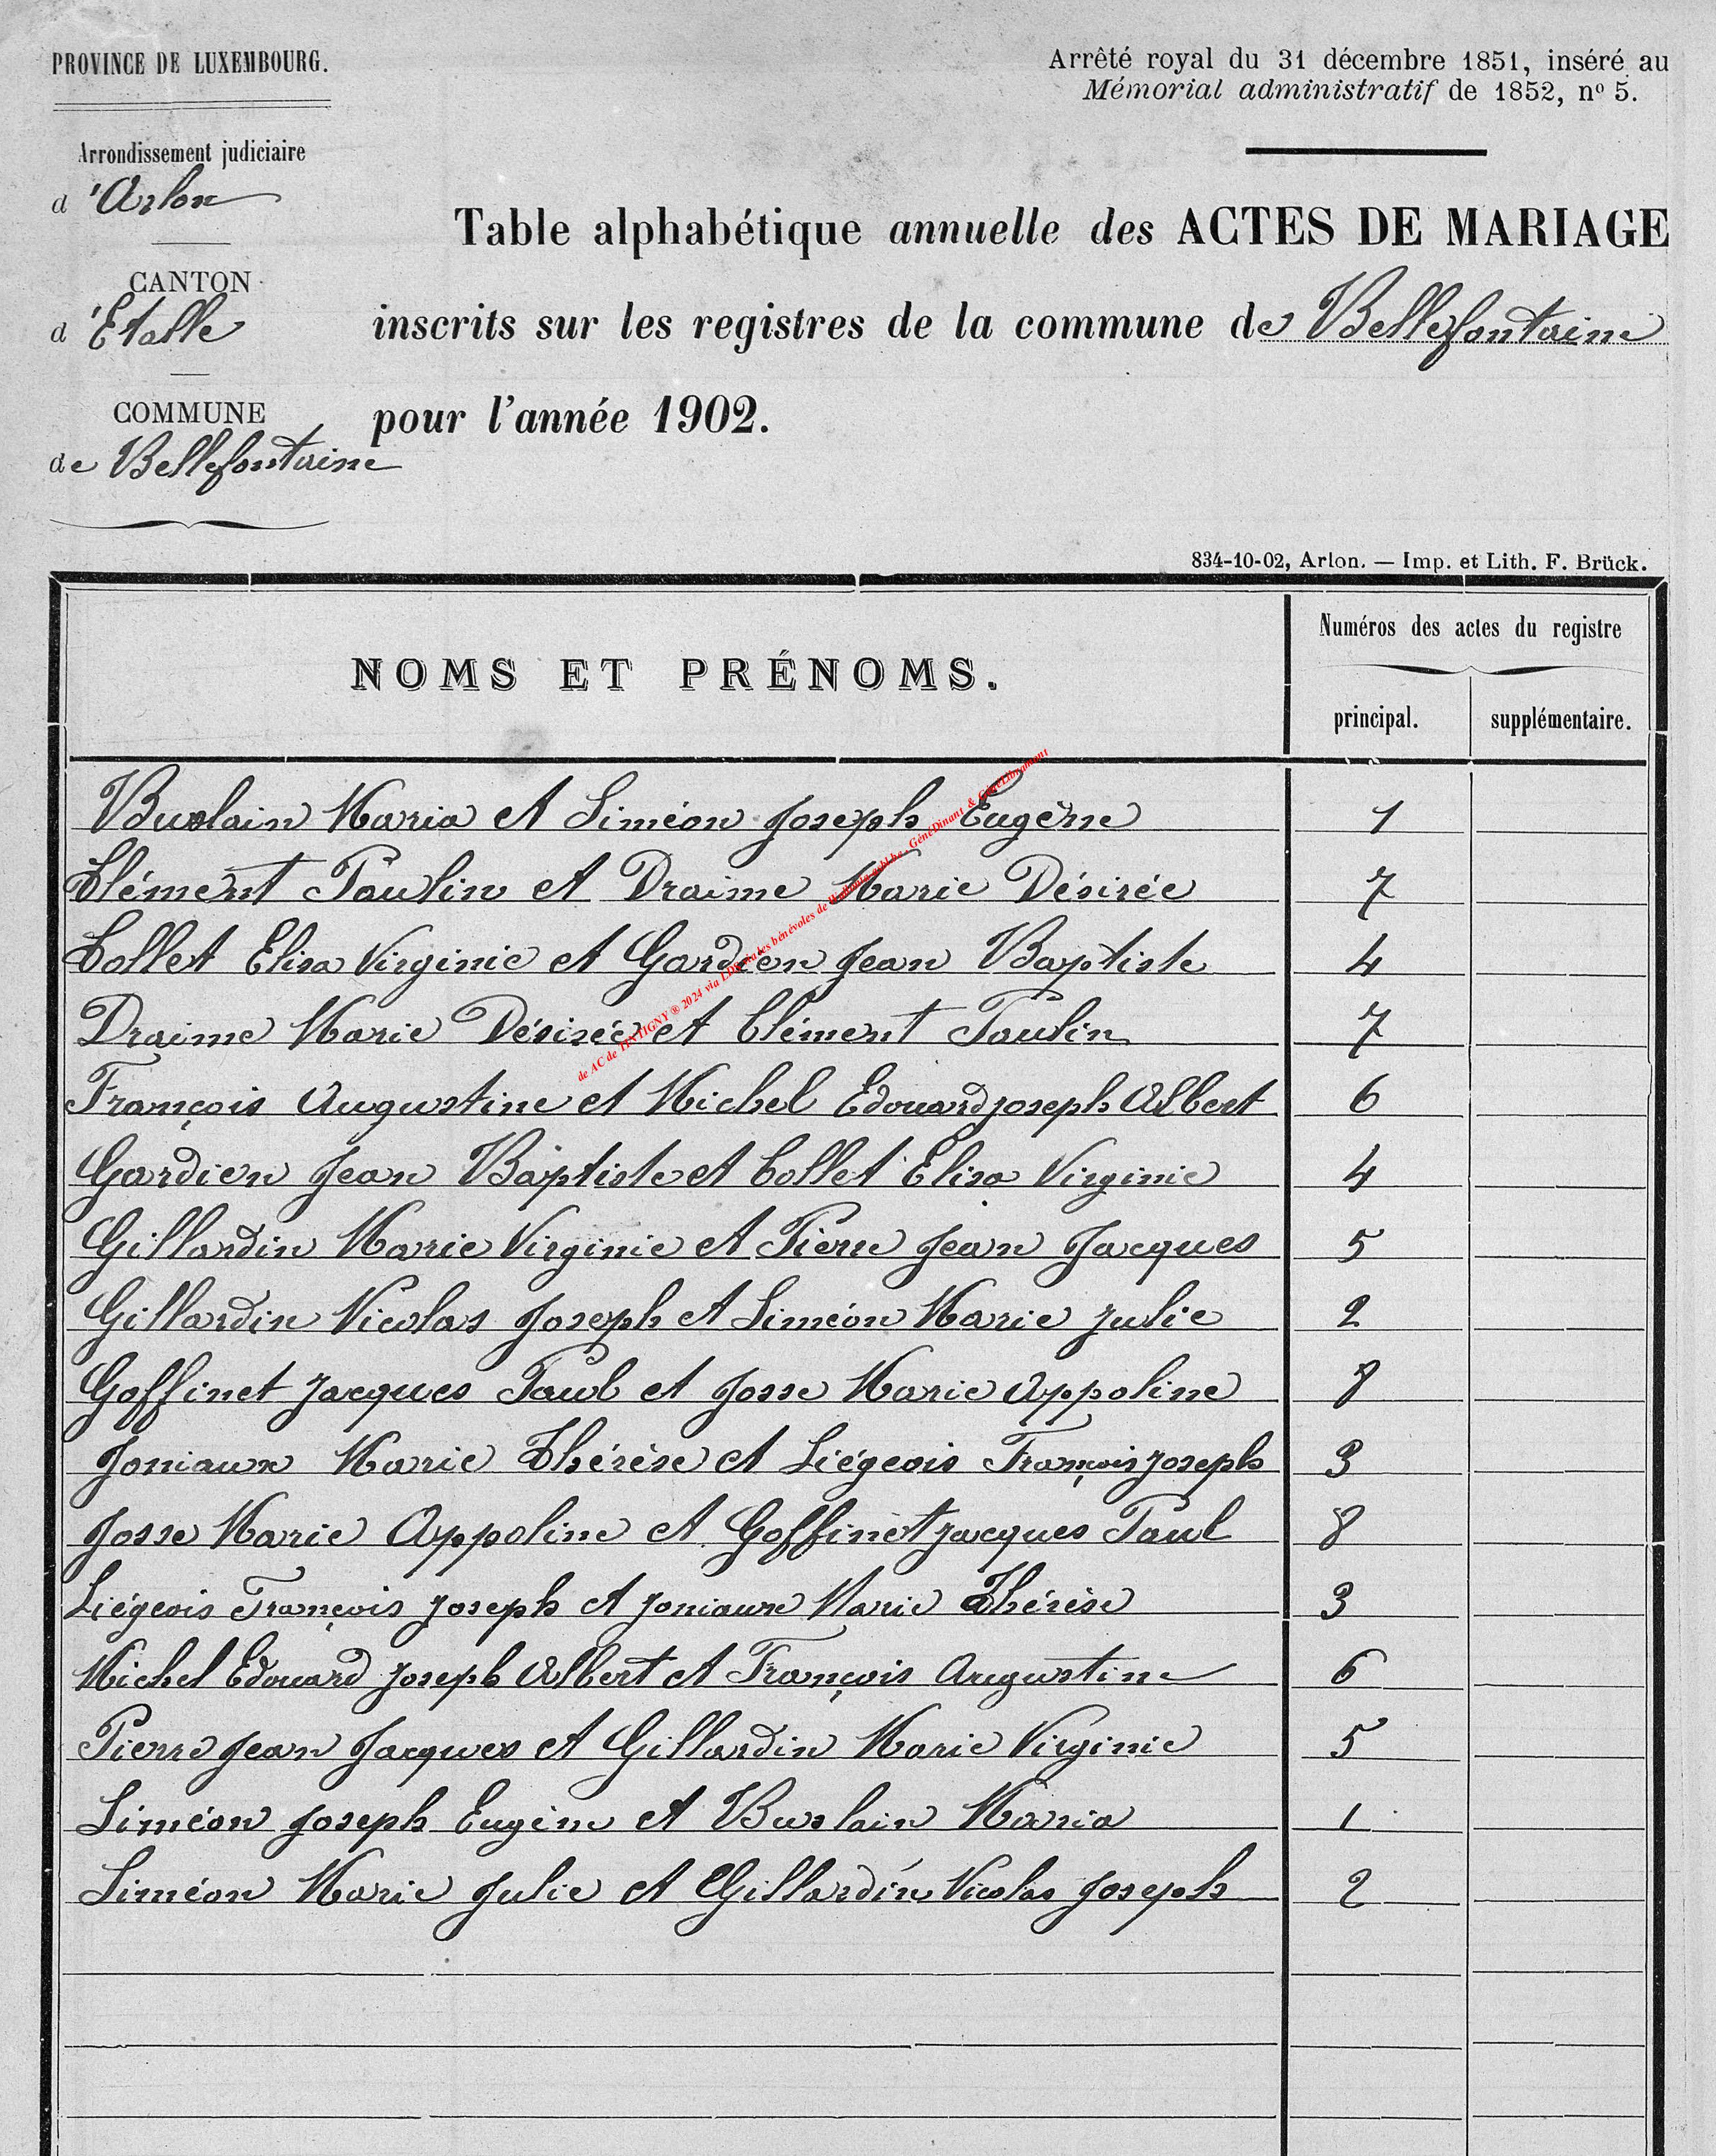 PROVINCE DE LUXEMBOURG.
Arrêté royal du 31 décembre 1851, inséré au
Mémorial administratif de 1852, nº 5.
Arrondissement judiciaire
d'Arlon
CANTON
d'Etalle
COMMUNE
de Bellefontaine
Table alphabétique annuelle des ACTES DE MARIAGE
inscrits sur les registres de la commune de Bellefontaine
pour l'année 1902.
834-10-02, Arlon. — Imp. et Lith. F. Brück.
NOMS ET PRÉNOMS.
Numéros des actes du registre
principal. supplémentaire.
Buslain Maria et Siméon Joseph Eugène 1
Clément Paulin et Draime Marie Désirée 7
Collet Elisa Virginie et Gardien Jean Baptiste 4
Draime Marie Désirée et Clément Paulin 7
François Augustine et Michel Edouard Joseph Albert 6
Gardien Jean Baptiste et Collet Elisa Virginie 4
Gillardin Marie Virginie et Pierre Jean Jacques 5
Gillardin Nicolas Joseph et Siméon Marie Julie 2
Goffinet Jacques Paul et Josse Marie Appoline 8
Joniaux Marie Thérèse et Liégeois François Joseph 3
Josse Marie Appoline et Goffinet Jacques Paul 8
Liégeois François Joseph et Joniaux Marie Thérèse 3
Michel Edouard Joseph Albert et François Augustine 6
Pierre Jean Jacques et Gillardin Marie Virginie 5
Siméon Joseph Eugène et Buslain Maria 1
Siméon Marie Julie et Gillardin Nicolas Joseph 2
de AC de TINTIGNY ® 2024 via les bénévoles de GénéDinant &